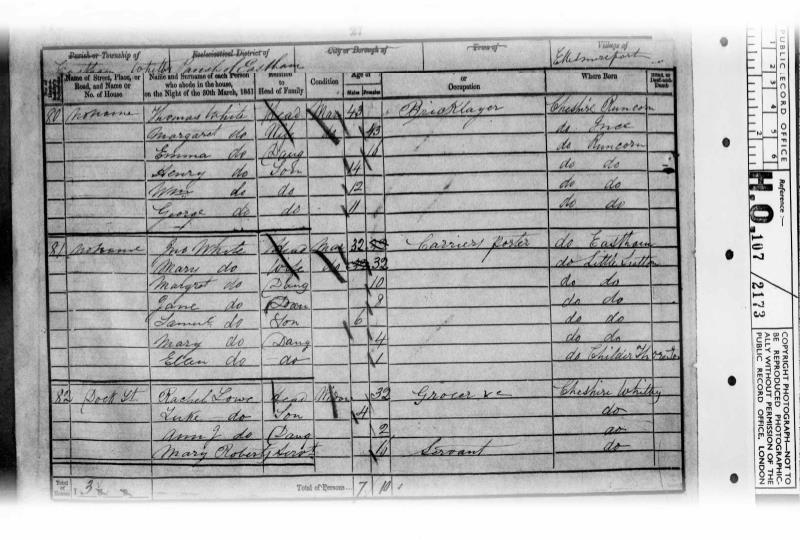 Parish or Township of
Ecclesiastical District of
City or Borough of
Town of
Village of
Ellesmereport
Name of Street, Place, or Road, and Name or No. of House
Name and Surname of each Person who abode in the house, on the Night of the 30th March, 1851
Relation to Head of Family
Condition
Age of
Males Females
Rank, Profession, or Occupation
Where Born
80 No name Thomas White Head Mar 43 Bricklayer Cheshire Runcorn
Margaret do Wife 43 do Ince
Emma do Daug do Runcorn
Henry do Son 14 do do
Wm do do 12 do do
George do do 11 do do
81 No name Jno White Head Mar 32 Carrier porter do Eastham
Mary do Wife do 32 do Little Sutton
Margret do Daug 10 do do
Jane do Daug 8 do do
Samuel do Son 6 do do
Mary do Daug 4 do do
Ellen do do 1 do Childer Thornton
82 Dock St. Rachel Lowe Head 32 Grocer &c Cheshire Whitby
Luke do Son 4 do
Ann J do Daug 2 do
Mary Roberts Servt Servant do
Total of Houses
3
Total of Persons... 7 10
PUBLIC RECORD OFFICE
Reference :-
H.O. 107 / 2173
COPYRIGHT PHOTOGRAPH—NOT TO BE REPRODUCED PHOTOGRAPHICALLY WITHOUT PERMISSION OF THE PUBLIC RECORD OFFICE, LONDON